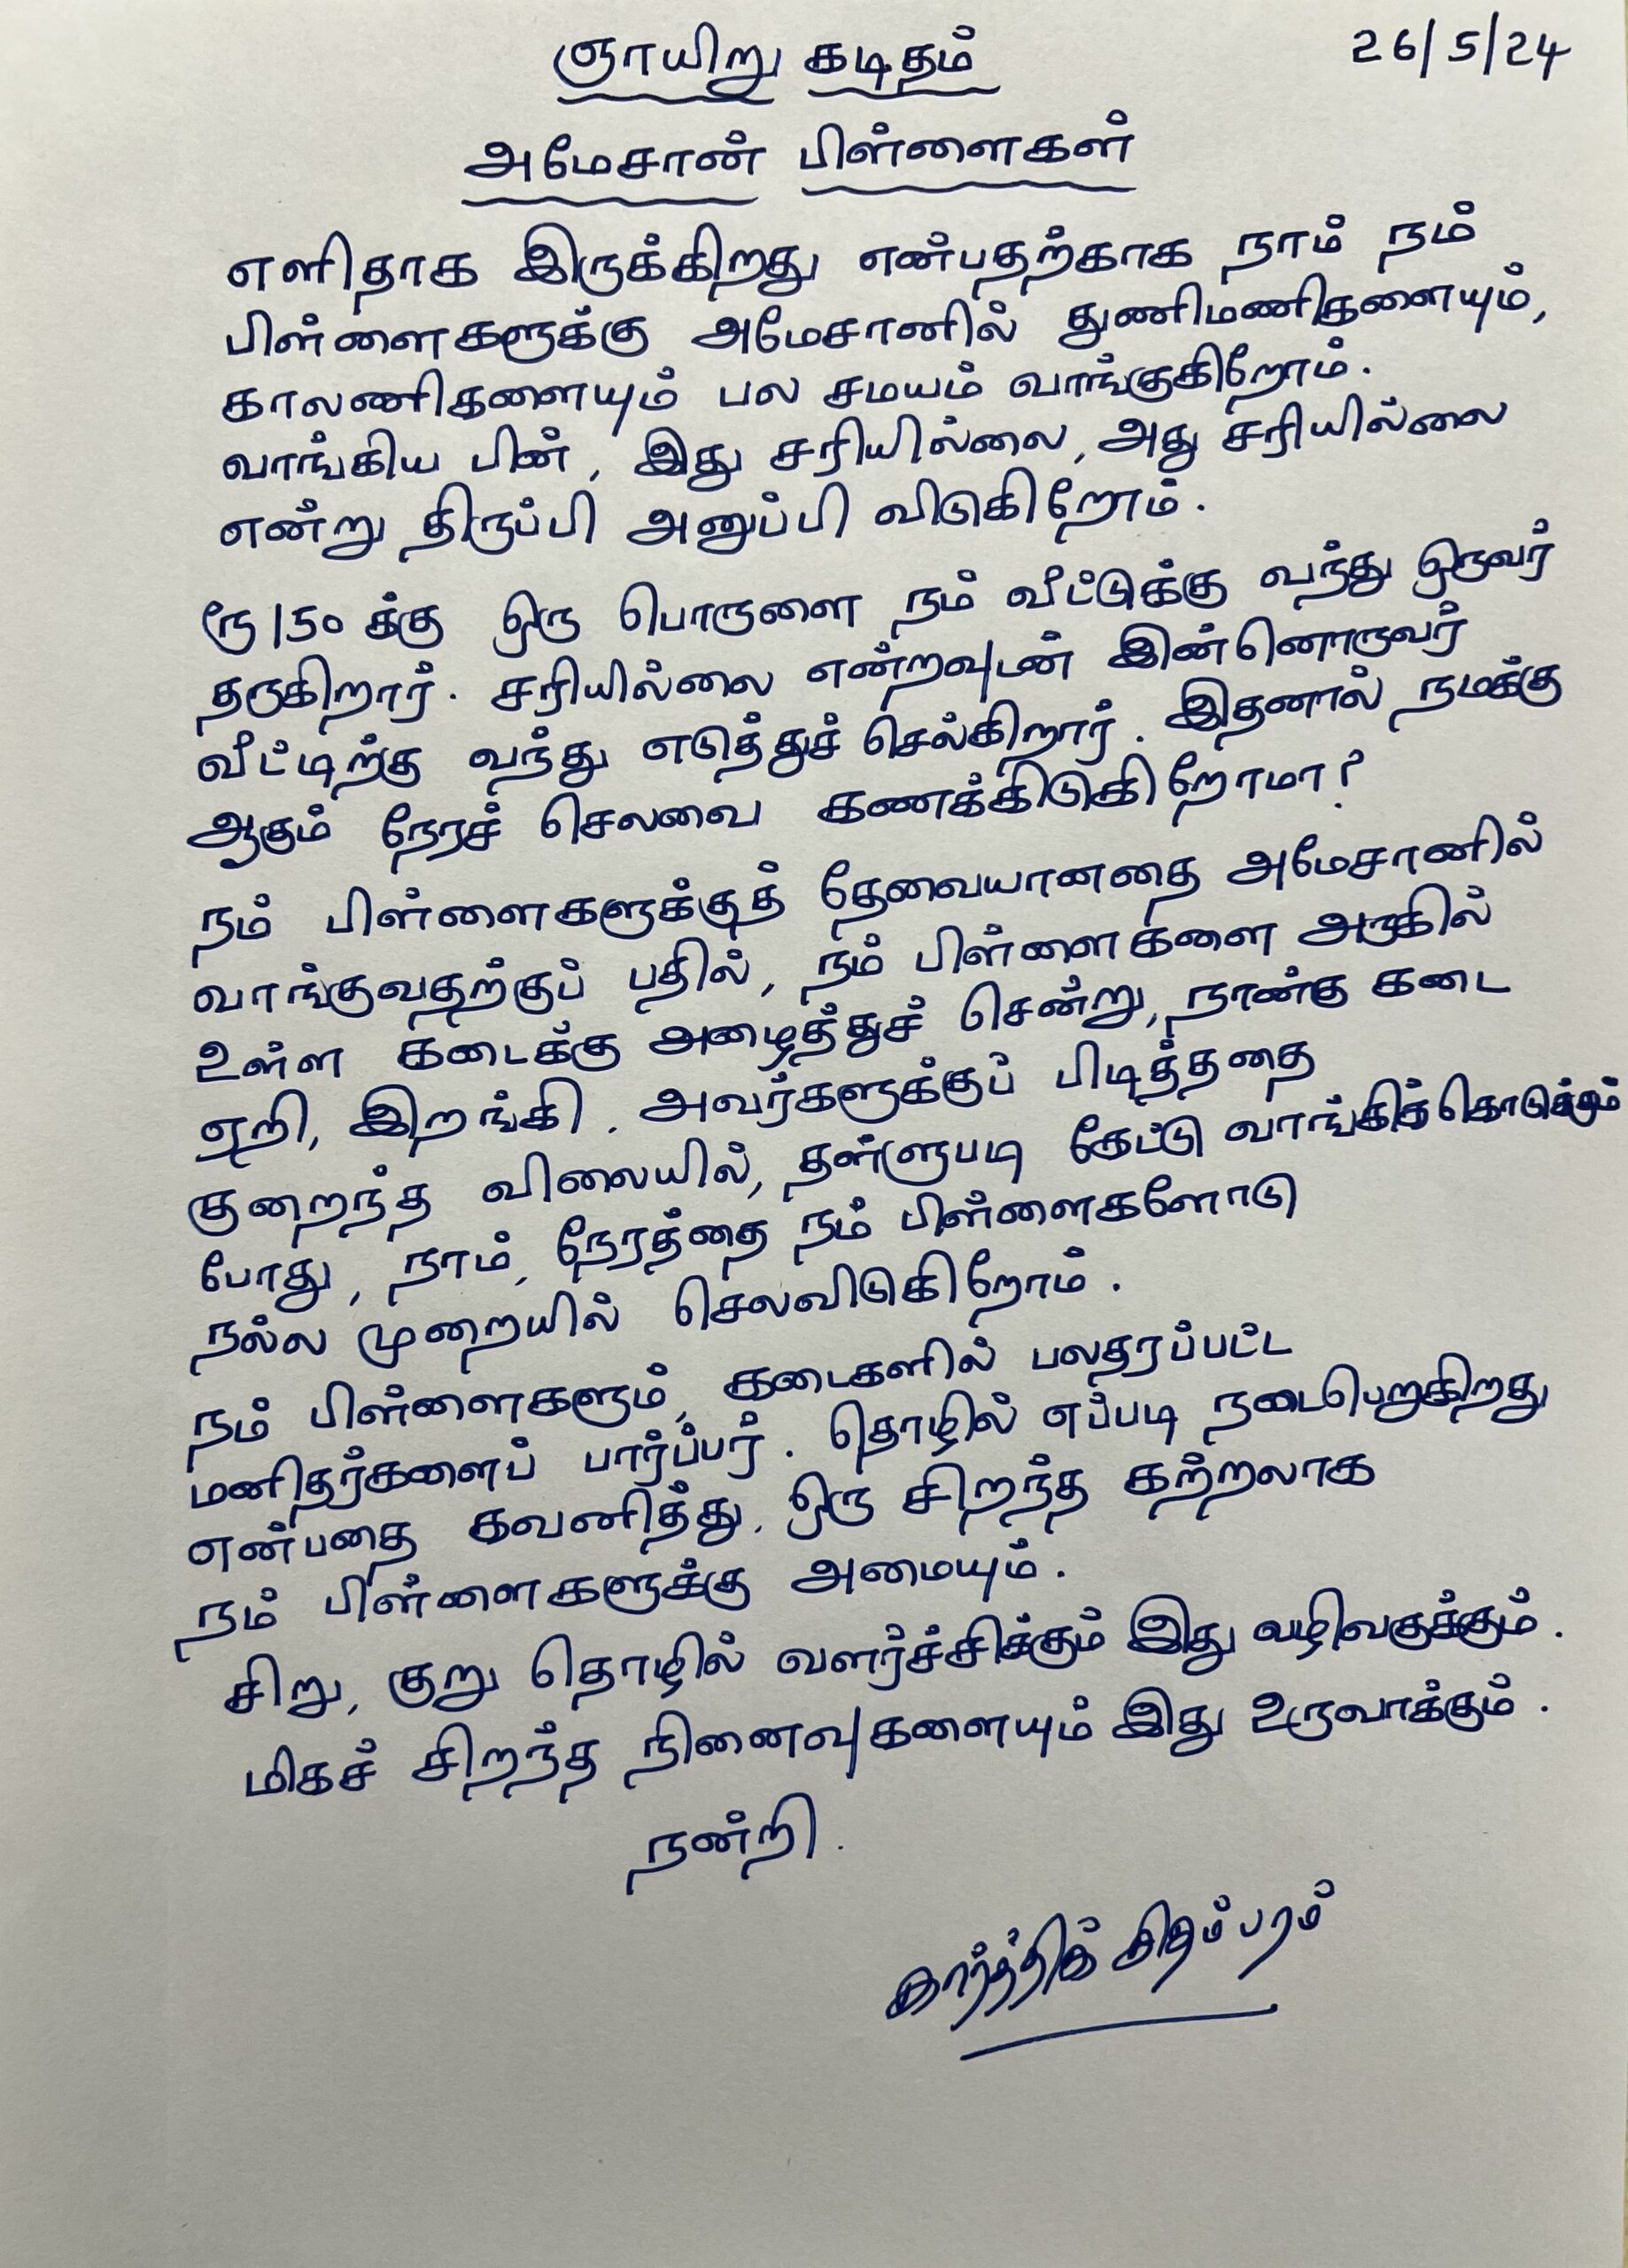 ஞாயிறு கடிதம்
26/5/24
அமேசான் பிள்ளைகள்
எளிதாக இருக்கிறது என்பதற்காக நாம் நம்
பிள்ளைகளுக்கு அமேசானில் துணிமணிகளையும்,
காலணிகளையும் பல சமயம் வாங்குகிறோம்.
வாங்கிய பின், இது சரியில்லை, அது சரியில்லை
என்று திருப்பி அனுப்பி விடுகிறோம்.
ரூ 150 க்கு ஒரு பொருளை நம் வீட்டுக்கு வந்து ஒருவர்
தருகிறார். சரியில்லை என்றவுடன் இன்னொருவர்
வீட்டிற்கு வந்து எடுத்துச் செல்கிறார். இதனால் நமக்கு
ஆகும் நேரச் செலவை கணக்கிடுகிறோமா?
நம் பிள்ளைகளுக்குத் தேவையானதை அமேசானில்
வாங்குவதற்குப் பதில், நம் பிள்ளைகளை அருகில்
உள்ள கடைக்கு அழைத்துச் சென்று, நான்கு கடை
ஏறி, இறங்கி, அவர்களுக்குப் பிடித்ததை
குறைந்த விலையில், தள்ளுபடி கேட்டு வாங்கிக்கொடுக்கும்
போது, நாம், நேரத்தை நம் பிள்ளைகளோடு
நல்ல முறையில் செலவிடுகிறோம்.
நம் பிள்ளைகளும், கடைகளில் பலதரப்பட்ட
மனிதர்களைப் பார்ப்பர். தொழில் எப்படி நடைபெறுகிறது
என்பதை கவனித்து, ஒரு சிறந்த கற்றலாக
நம் பிள்ளைகளுக்கு அமையும்.
சிறு, குறு தொழில் வளர்ச்சிக்கும் இது வழிவகுக்கும்.
மிகச் சிறந்த நினைவுகளையும் இது உருவாக்கும்.
நன்றி.
கார்த்திக் சிதம்பரம்